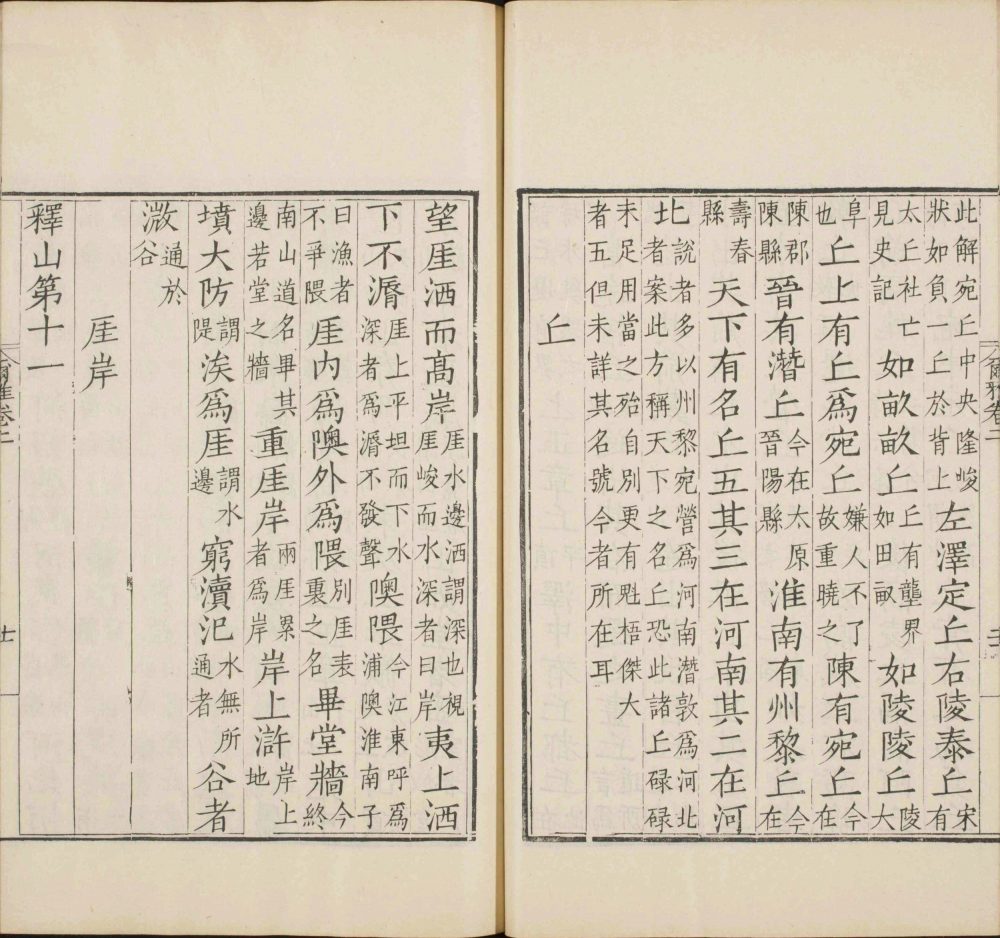 此解宛丘中央隆峻
狀如負一丘於背上左澤定丘右陵泰丘宋有
太丘社亡
見史記如畝畝丘丘有壟界如田畝如陵陵丘陵大
阜也丘上有丘爲宛丘嫌人不了故重曉之陳有宛丘今在
陳郡陳縣晉有潛丘今在太原晉陽縣淮南有州黎丘今在
壽春縣天下有名丘五其三在河南其二在河
北說者多以州黎宛營爲河南潛敦爲河北
者案此方稱天下之名丘恐此諸丘碌碌
未足用當之殆自別更有魁梧傑大
者五但未詳其名號今者所在耳
丘
望厓洒而高岸厓水邊洒謂深也視厓峻而水深者曰岸夷上洒
下不漘厓上平坦而下水深者爲漘不發聲隩隈今江東呼爲浦隩淮南子
曰漁者不爭隈厓内爲隩外爲隈別厓表裏之名畢堂牆今終
南山道名畢其邊若堂之牆重厓岸兩厓累者爲岸岸上滸岸上地
墳大防謂隄涘爲厓謂水邊窮瀆汜水無所通者谷者
溦通於谷
厓岸
釋山第十一
爾雅卷二